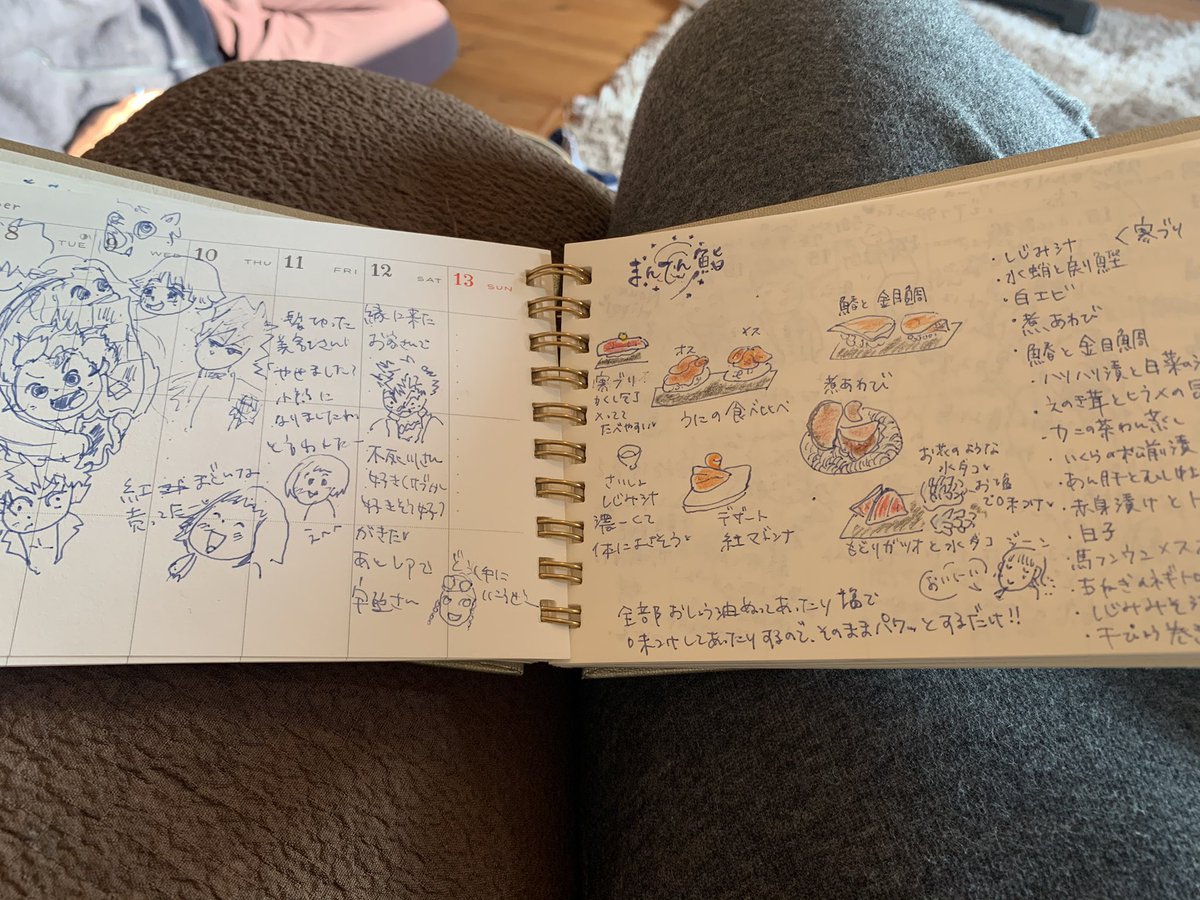 8
TUE
9
WED
10
THU
11
FRI
12
SAT
13
SUN
髪切った
美容さんに
「やせました?
小顔に
なりましたね
と言われた
縁に来た
お客さんで
不死川さん
好きそう好き
がきた
あとレアで
宇髄さん
紅まどんな
売ってた
まんてん鮨
寒ブリ
かくし包丁
入ってて
たべやすい
オス
メス
うにの食べ比べ
さいしょ
しじみ汁
濃ーくて
体においそう
デザート
紅マドンナ
鰆と金目鯛
煮あわび
お花のような
水ダコ
お塩
で味つけ
もどりガツオと水ダコ
おいしい
ジーン
全部おしょう油ぬってあったり塩で
味つけしてあったりするので、そのままパクッとするだけ!!
・しじみ汁
寒ブリ
・水蛸と戻り鰹
・白エビ
・煮あわび
・鰆と金目鯛
・ハリハリ漬と白菜の
・えのき茸とヒラメの
・カニの茶わん蒸し
・いくらの松前漬
・あん肝と
・赤身漬けと
・白子
・馬フンウニメス
・しじみみそ
・干ぴょう巻